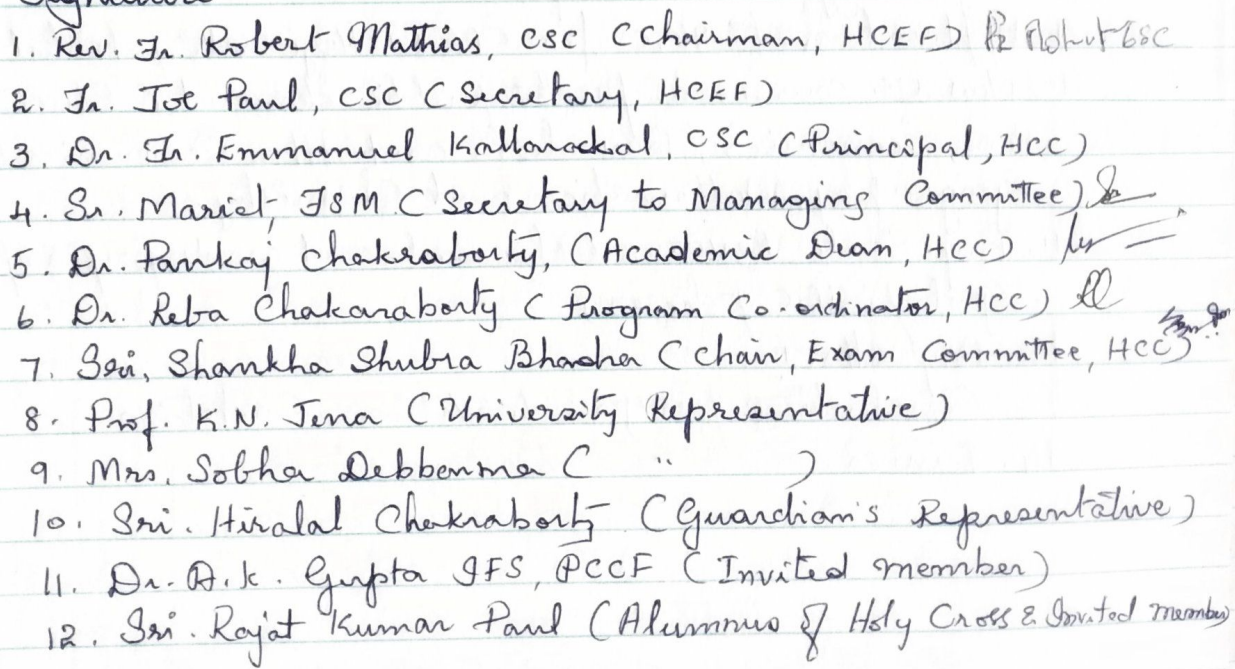 Signature
1. Rev. Fr. Robert Mathias, CSC (Chairman, HCEF)
2. Fr. Joe Paul, CSC (Secretary, HCEF)
3. Dr. Fr. Emmanuel Kallarackal, CSC (Principal, HCC)
4. Sr. Mariet, FSM (Secretary to Managing Committee)
5. Dr. Pankaj Chakraborty, (Academic Dean, HCC)
6. Dr. Reba Chakaraborty (Program Co-ordinator, HCC)
7. Sri, Shankha Shubra (Chair, Exam Committee, HCC)
8. Prof. K.N. Jena (University Representative)
9. Mrs. Sobha Debbenma ( " )
10. Sri. Hiralal Chakraborty (Guardian's Representative)
11. Dr. A.K. Gupta IFS, PCCF (Invited member)
12. Sri. Rajat Kumar Paul (Alumnus of Holy Cross & Invited member)